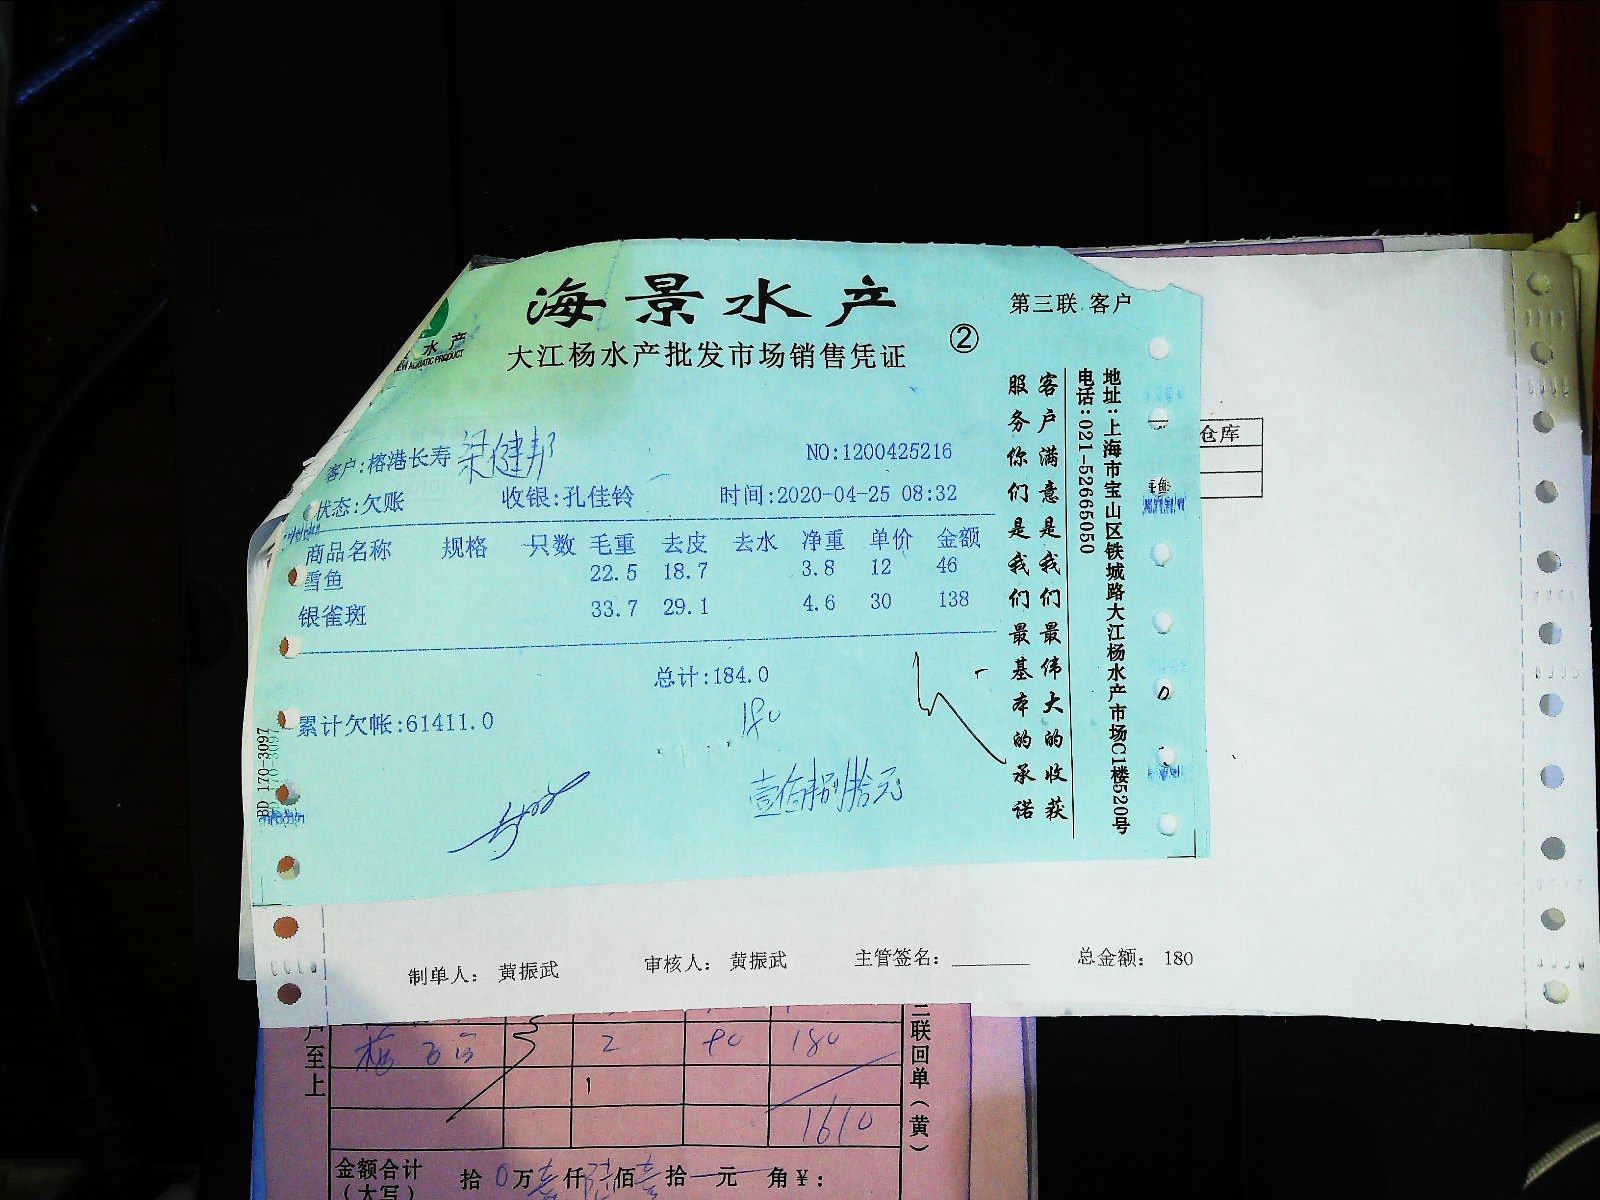 海景水产
第三联 客户
水产
AQUATIC PRODUCT
大江杨水产批发市场销售凭证
②
客户:榕港长寿 梁健邦
NO:1200425216
状态:欠账 收银:孔佳铃 时间:2020-04-25 08:32
商品名称 规格 只数 毛重 去皮 去水 净重 单价 金额
雪鱼 22.5 18.7 3.8 12 46
银雀斑 33.7 29.1 4.6 30 138
总计:184.0
180
累计欠帐:61411.0
壹佰捌拾元
客户满意是我们最伟大的收获
服务你们是我们最基本的承诺
地址:上海市宝山区铁城路大江杨水产市场C1楼520号
电话:021-52665050
BD 170-3097
仓库
制单人: 黄振武 审核人: 黄振武 主管签名: 总金额: 180
户至上
2 90 180
1610
三联回单(黄)
金额合计(大写) 拾 0 万 壹 仟 陆 佰 壹 拾 元 角 ¥: